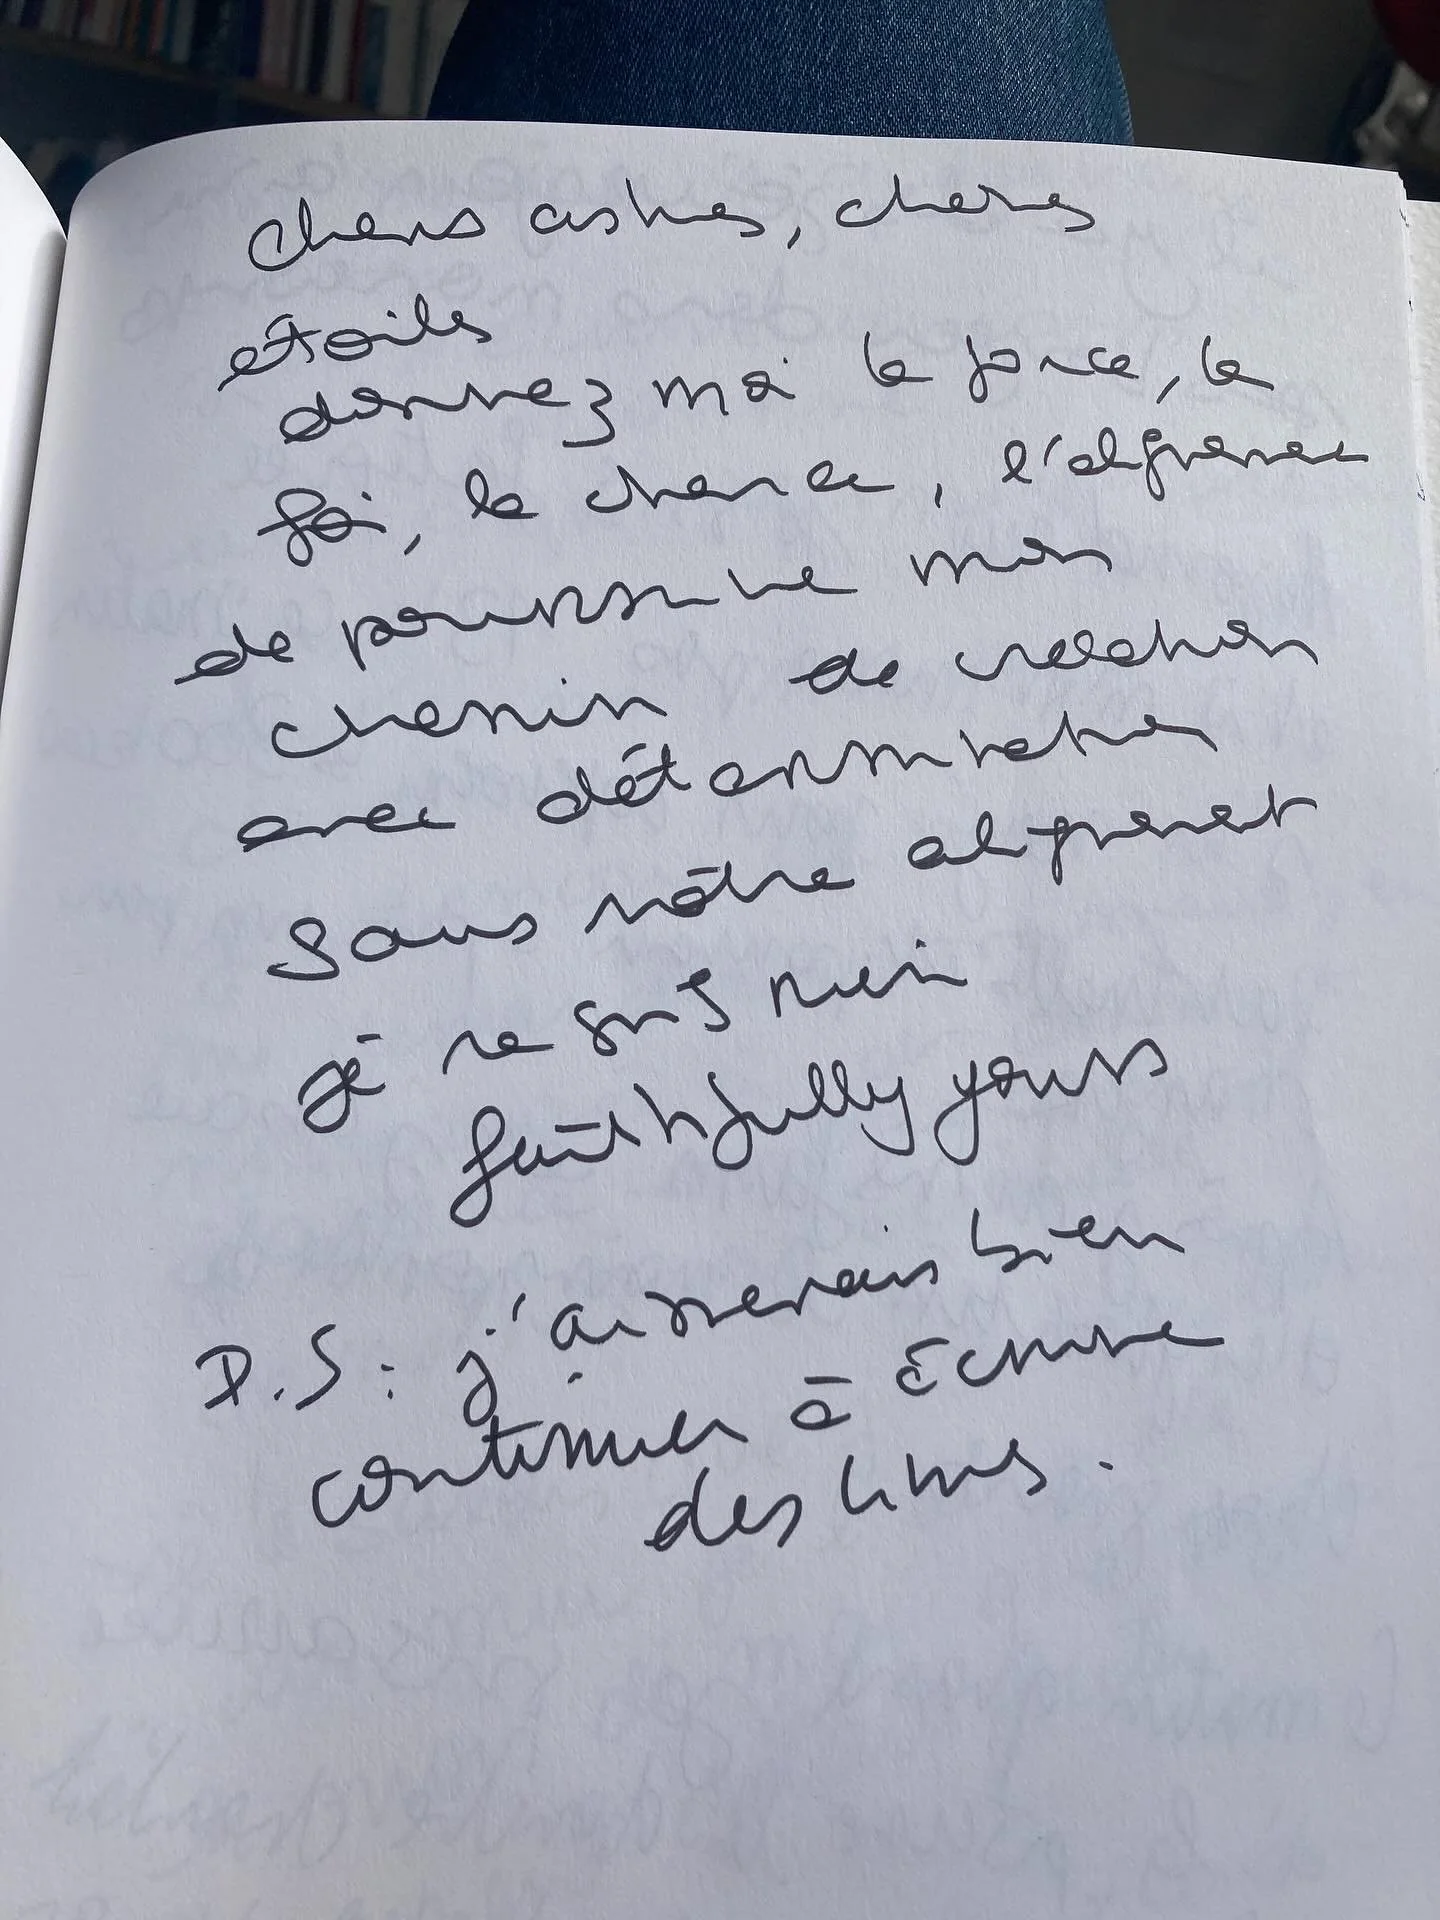 chers astres, chères
étoiles
donnez moi la force, la
foi, la chance, l'alignement
de poursuivre mon
chemin de création
avec détermination
sans vôtre alignement
je ne suis rien
faithfully yours
P.S: j'aimerais bien
continuer à écrire
des livres.